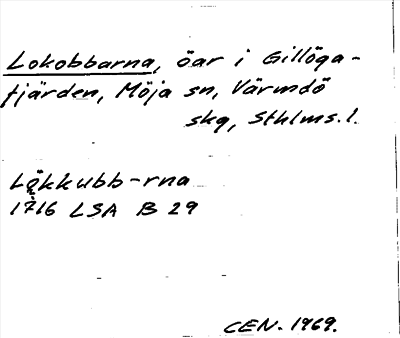 Lokobbarna, öar i Gillöga-
fjärden, Möja sn, Värmdö
skg, Sthlms. l.
Lökkubb-rna
1716 LSA B 29
CEN. 1969.